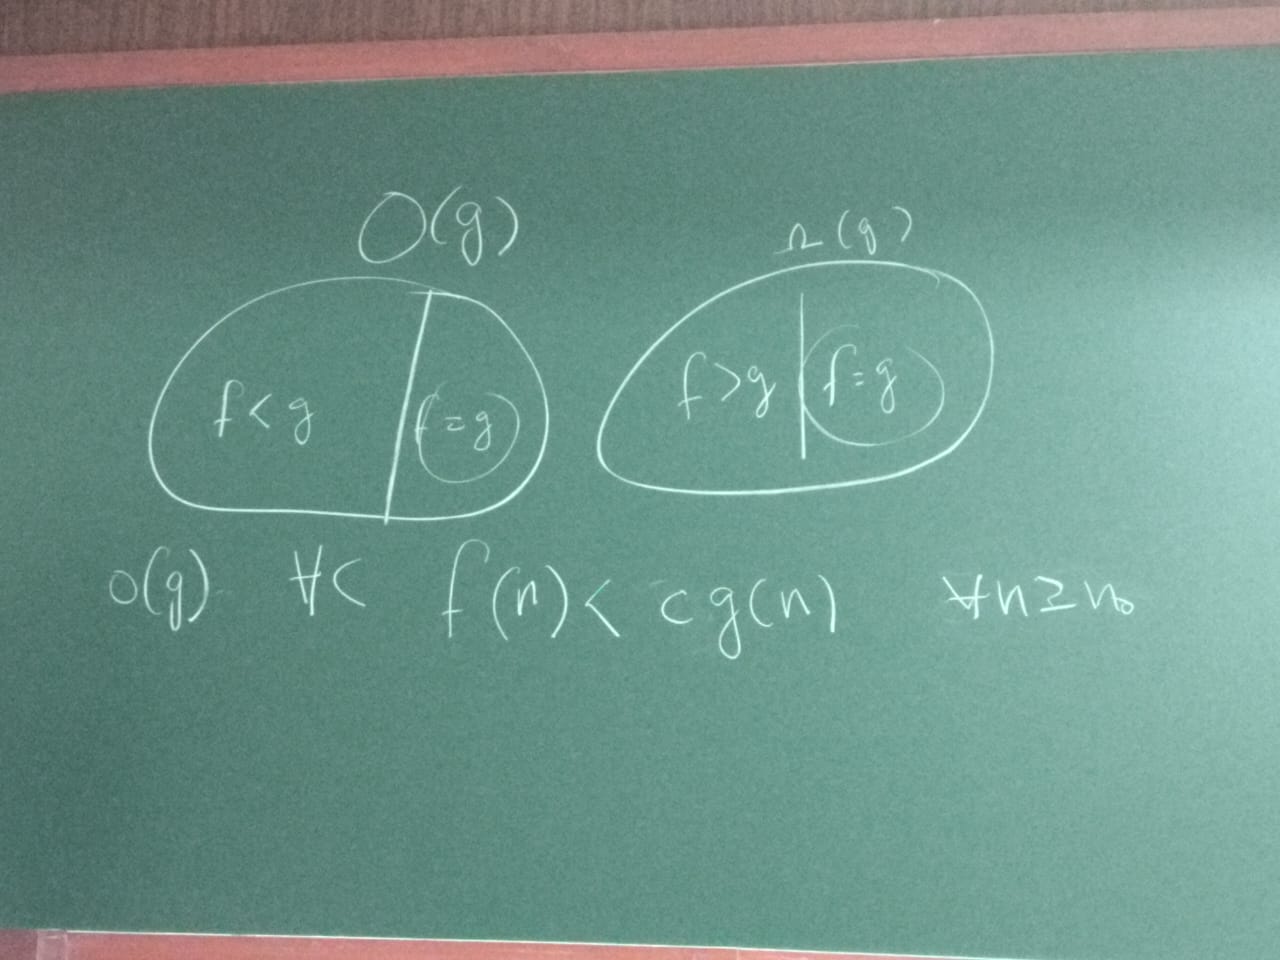 O(g) Ω(g)
f<g f=g f>g f=g
o(g) ∀c f(n)< cg(n) ∀n≥n₀